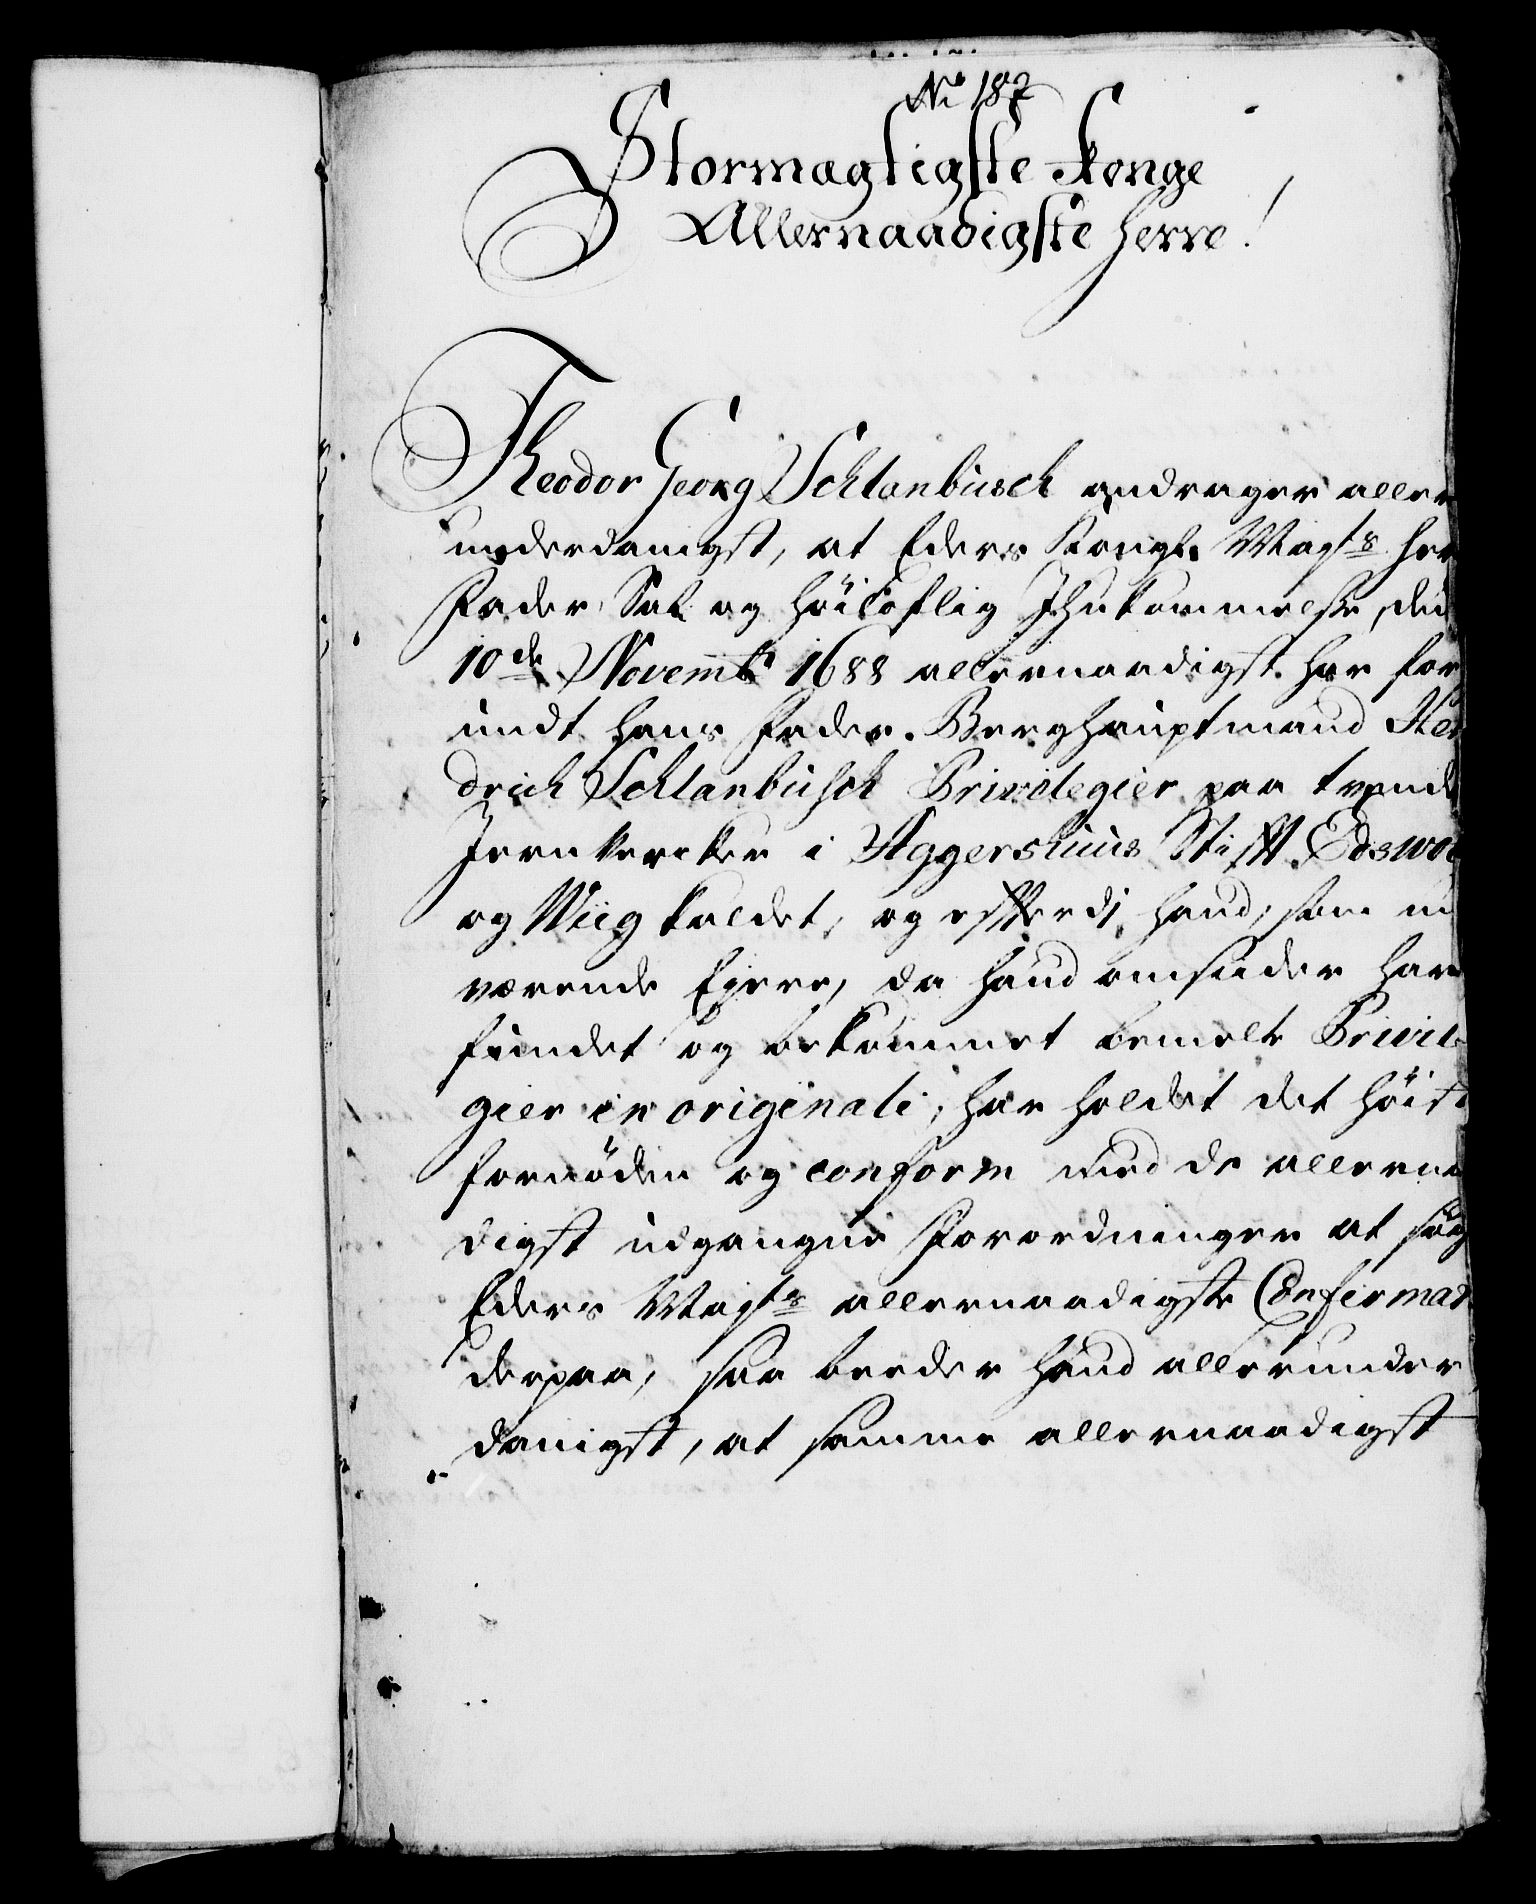 No 187
Stormægtigste Konge
Allernaadigste Herre!
Theodor Georg Schlanbusch andrager aller
underdanigst, at Eders Kongl. Mayts Her
Fader Sal og Höiloflig Ihukommelse, den
10de Novembr 1688 allernaadigst har for
undt hans Fader Berghauptmand Hen
drich Schlanbusch Privilegier paa tvende
Jernvercker i Aggershuus Stifft Edswol
og Wiig kaldet, og efterdj hand, som nu
værende Eyere, da hand omsider har
fundet og bekommet bemelte Privil-
gier in originali, har holdet det höist
fornöden og conform med de allerna
digst udgangne Forordninger at søg
Eders Mayts allernaadigste Confirmat
derpaa, saa beeder hand allerunder
danigst, at samme allernaadigst